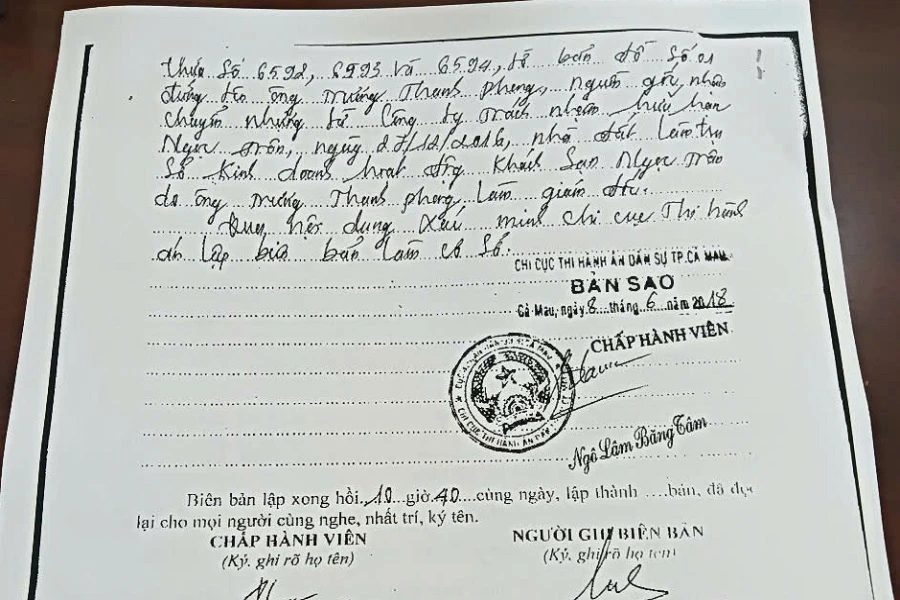 thửa Số 6592, 6593 và 6594, tờ bản đồ Số 01
đứng tên ông Trương Thanh Phong, nguồn gốc nhận
chuyển nhượng từ Công ty trách nhiệm hữu hạn
Ngọc Trân, ngày 27/12/2016, nhà đất làm trụ
Sở Kinh doanh hoạt động Khách Sạn Ngọc Trân
do ông Trương Thanh Phong làm giám đốc.
Qua nội dung Xác minh chi cục Thi hành
án lập biên bản làm cơ Sở.
CHI CỤC THI HÀNH ÁN DÂN SỰ TP.CÀ MAU
BẢN SAO
Cà Mau, ngày 8 tháng 6 năm 2018
CHẤP HÀNH VIÊN
CHI CỤC THI HÀNH ÁN DÂN
Ngô Lâm Băng Tâm
Biên bản lập xong hồi 10 giờ 40 cùng ngày, lập thành .... bản, đã đọc
lại cho mọi người cùng nghe, nhất trí, ký tên.
CHẤP HÀNH VIÊN NGƯỜI GHI BIÊN BẢN
(Ký, ghi rõ họ tên) (Ký, ghi rõ họ tên)